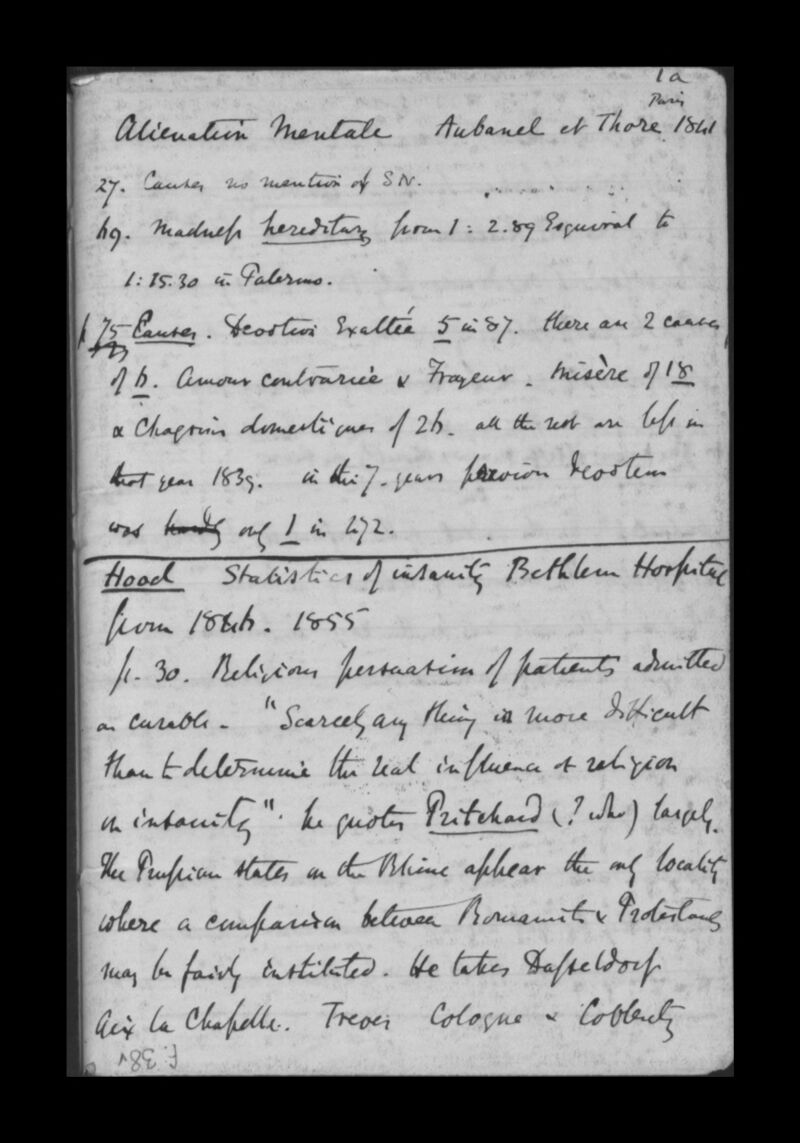 1a
Paris
Alienation Mentale Aubanel et Thore 1841
27. Causes no mention of S N.
49. Madness hereditary from 1 : 2.89 Esquirol to
1:15.30 in Palermo.
p 75 Causes. Devotion Exaltée 5 in 87. there are 2 causes
of 6. Amour contrariée & Frayeur. Misère of 18
& Chagrins domestiques of 26. all the rest are less in
that year 1839. in the 7. years previous devotion
was hardly only 1 in 272.
Hood Statistics of insanity Bethlem Hospital
from 1846. 1855
p. 30. Religious persuasion of patients admitted
as curable. "Scarcely any thing is more difficult
than to determine the real influence of religion
on insanity". he quotes Pritchard (? who) largely.
The Prussian states on the Rhine appear the only locality
where a comparison between Romanists & Protestants
may be fairly instituted. He takes Dusseldorf
Aix la Chapelle. Treves Cologne & Coblentz
F. 38v